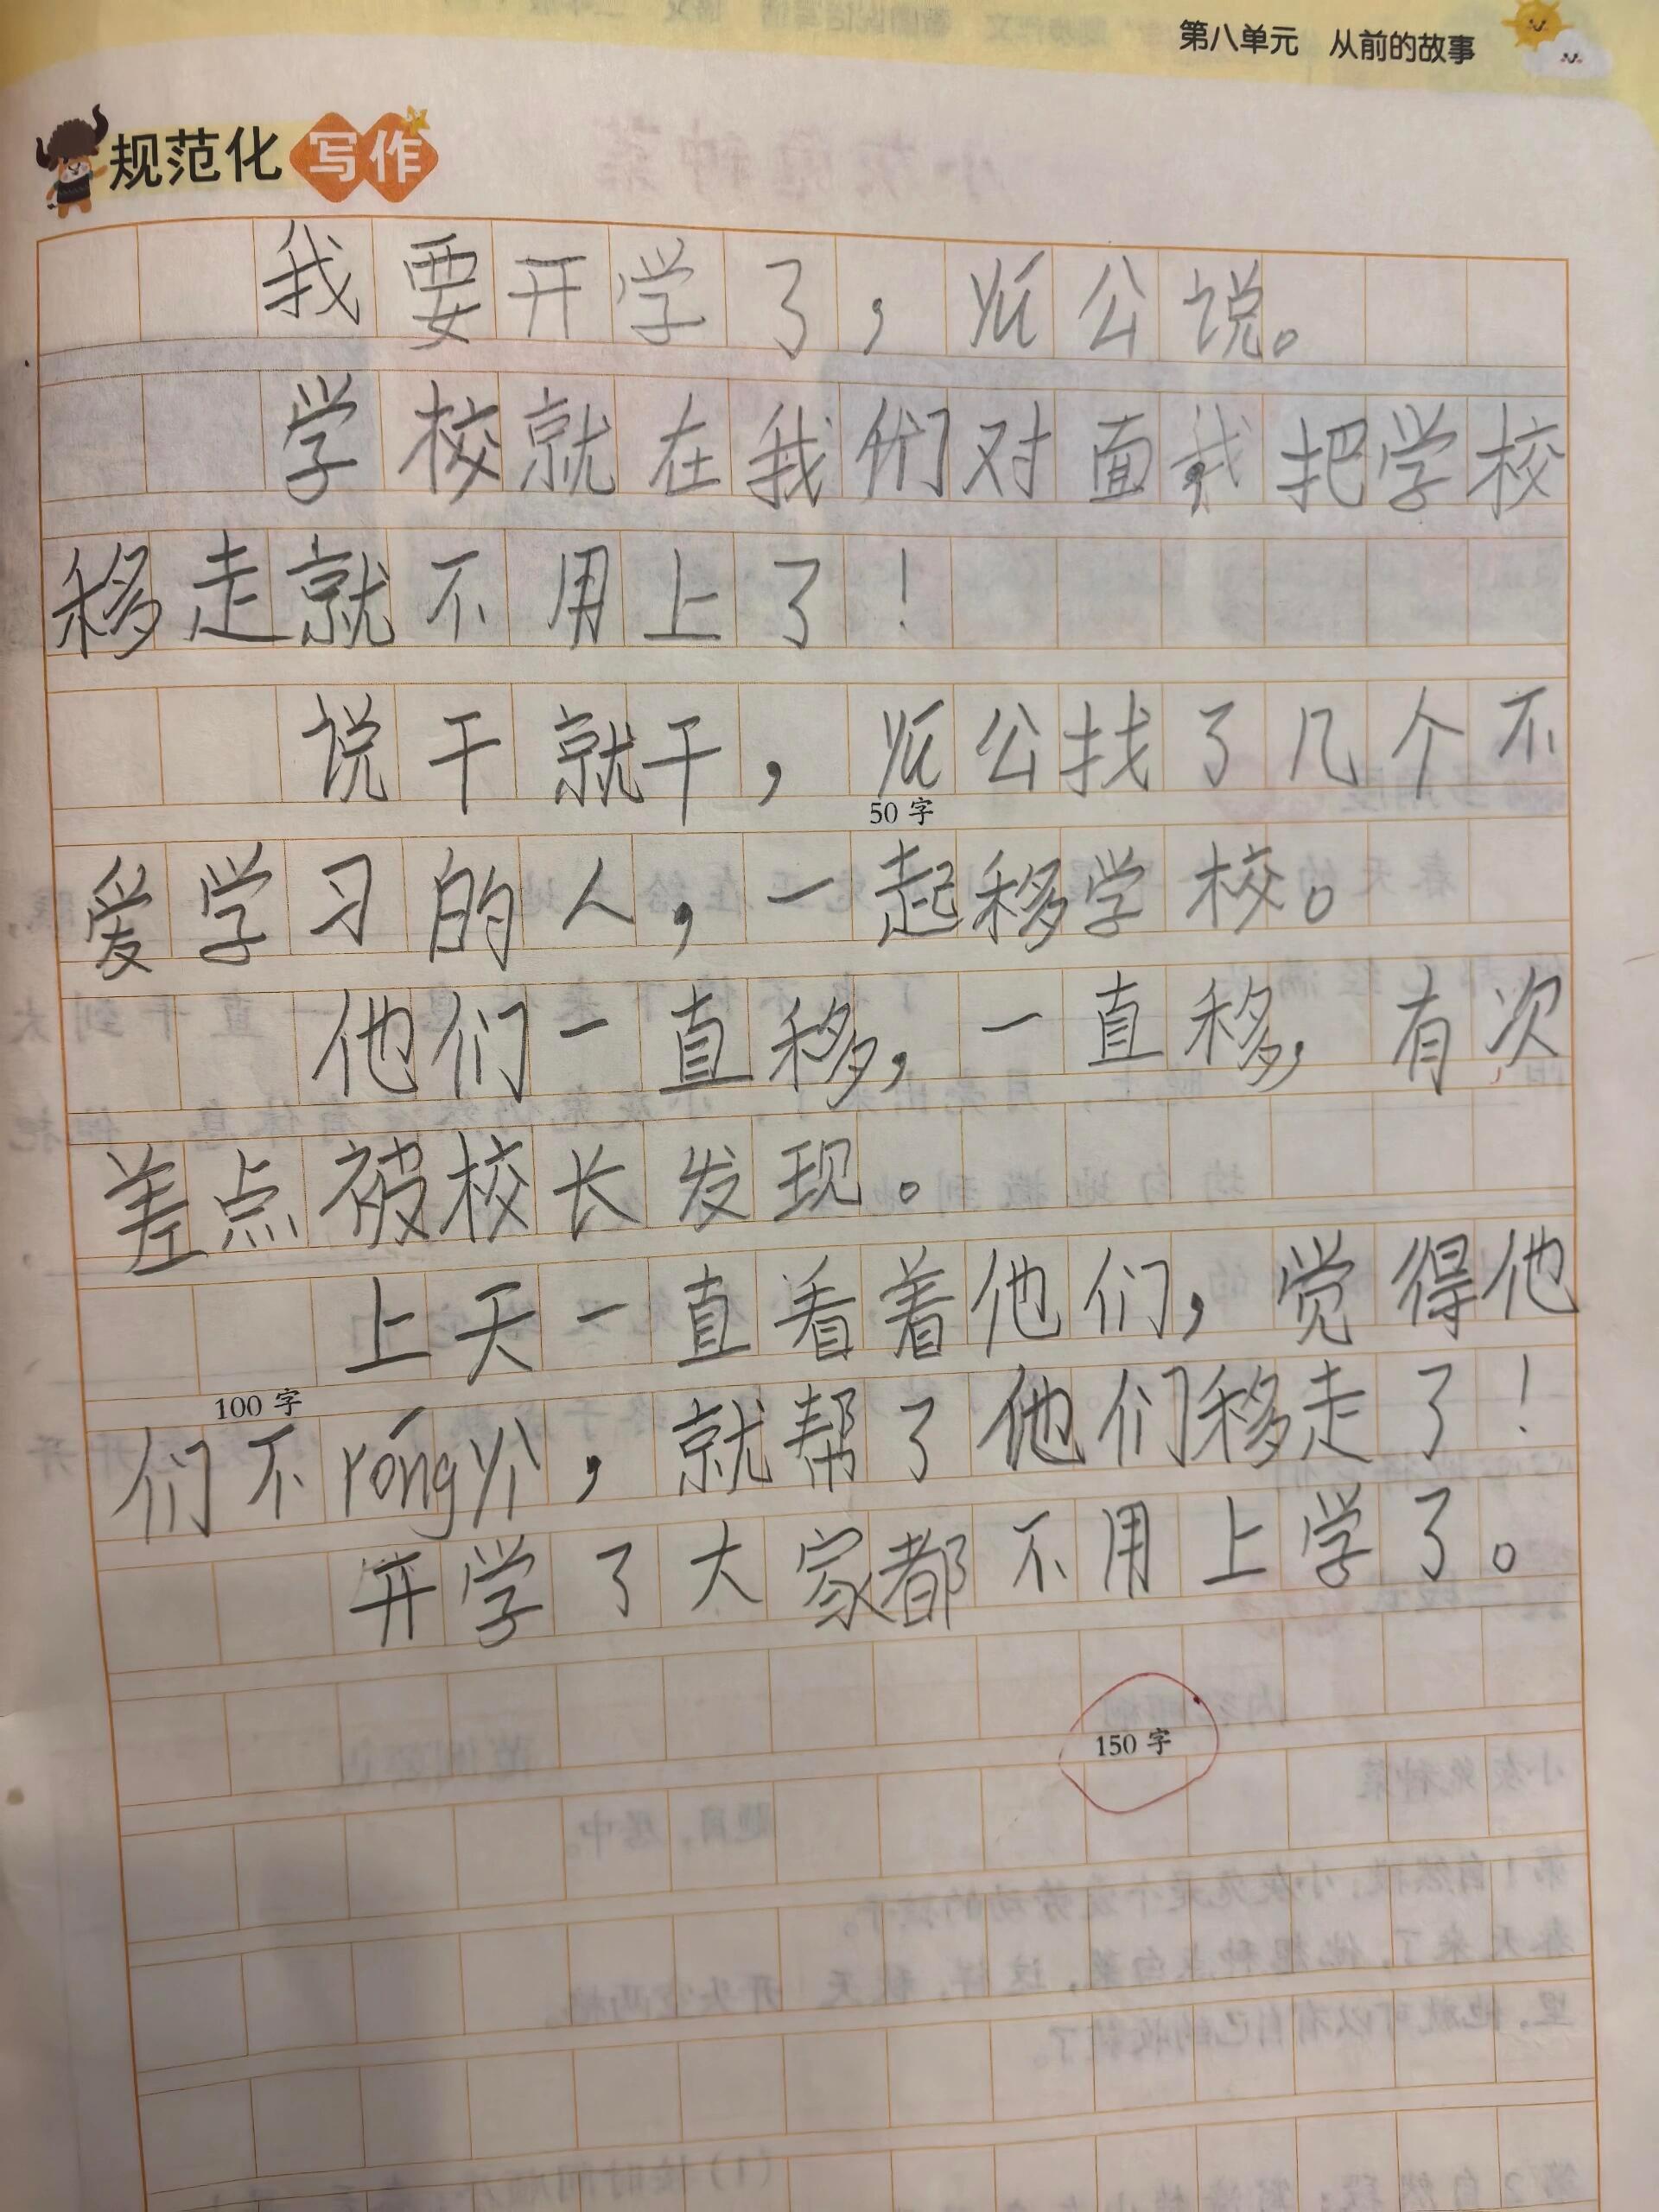 第八单元 从前的故事
规范化写作
我要开学了，公说。
学校就在我们对面，我把学校
移走就不用上了！
说干就干，公找了几个不
50字
爱学习的人，一起移学校。
他们一直移，一直移，有次
差点被校长发现。
上天一直看着他们，觉得他
100字
们不róng，就帮了他们移走了！
开学了大家都不用上学了。
150字